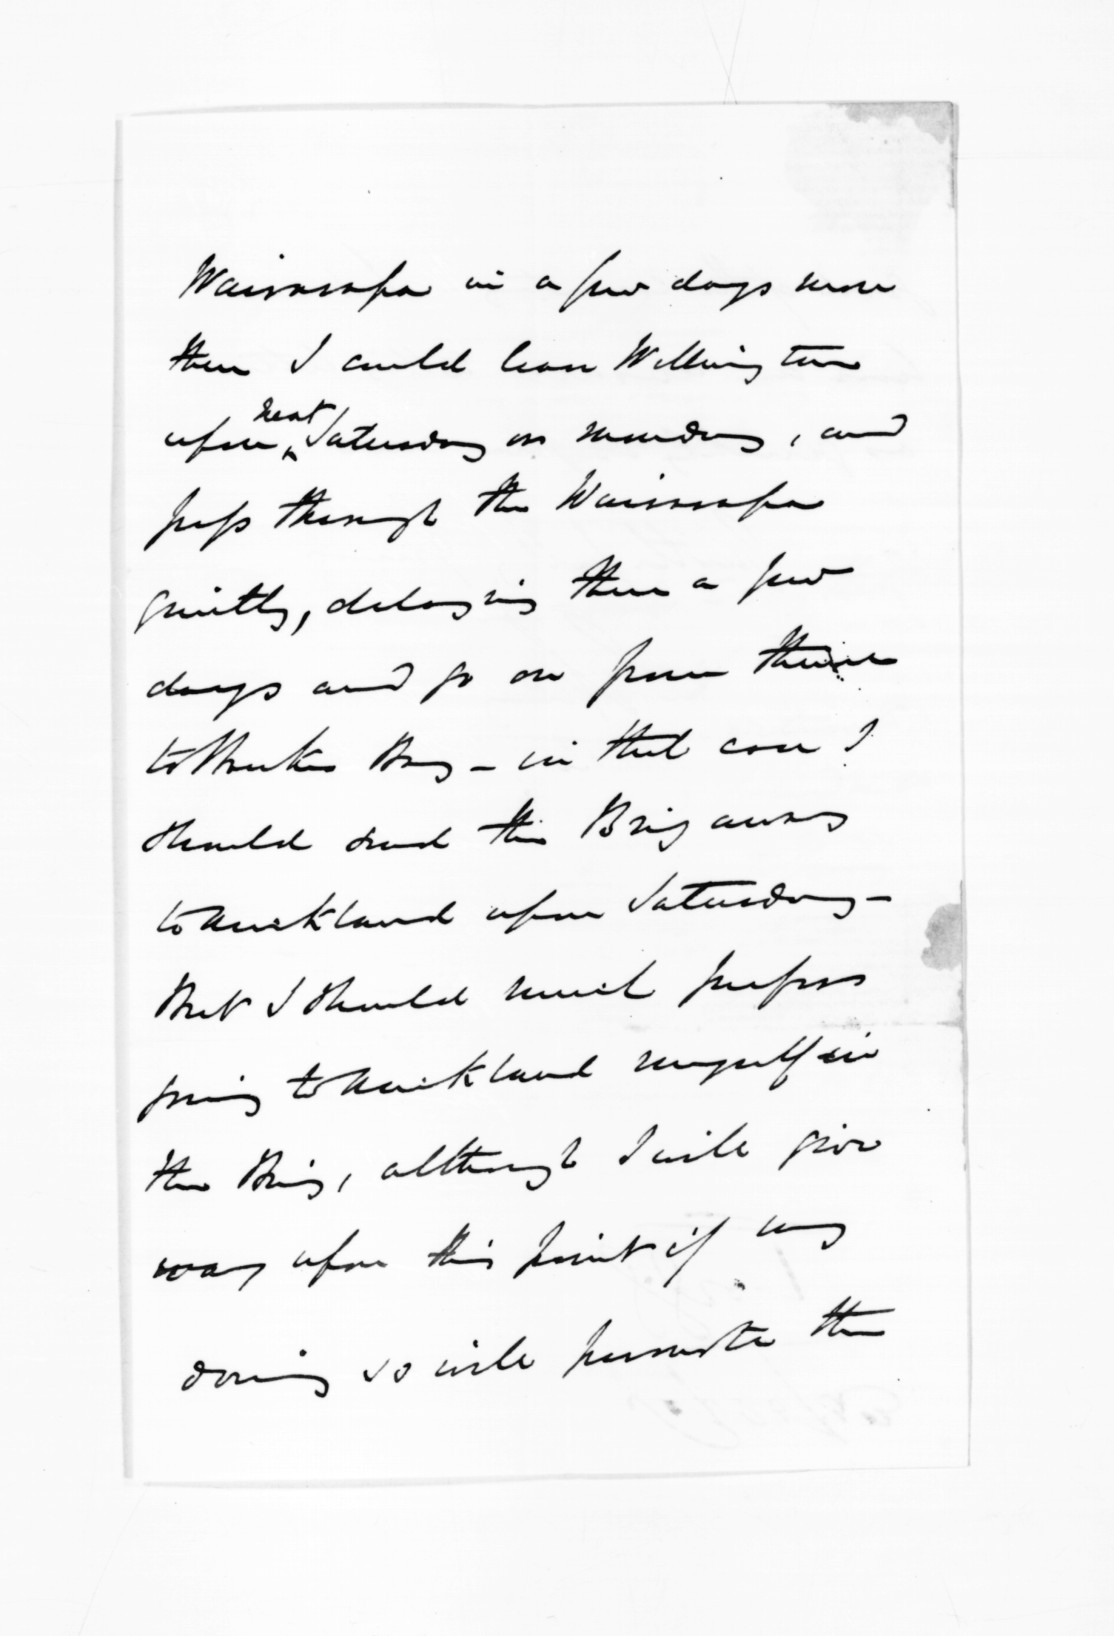 Wairarapa in a few days more
then I could leave Wellington
upon next Saturday or monday, and
pass through the Wairarapa
quietly, delaying there a few
days and go on from thence
to Hawkes Bay - in that case I
should send the Brig away
to Auckland upon Saturday -
But I should much prefer
going to Auckland myself in
the Brig, although I will give
way upon this point if my
doing so will promote the